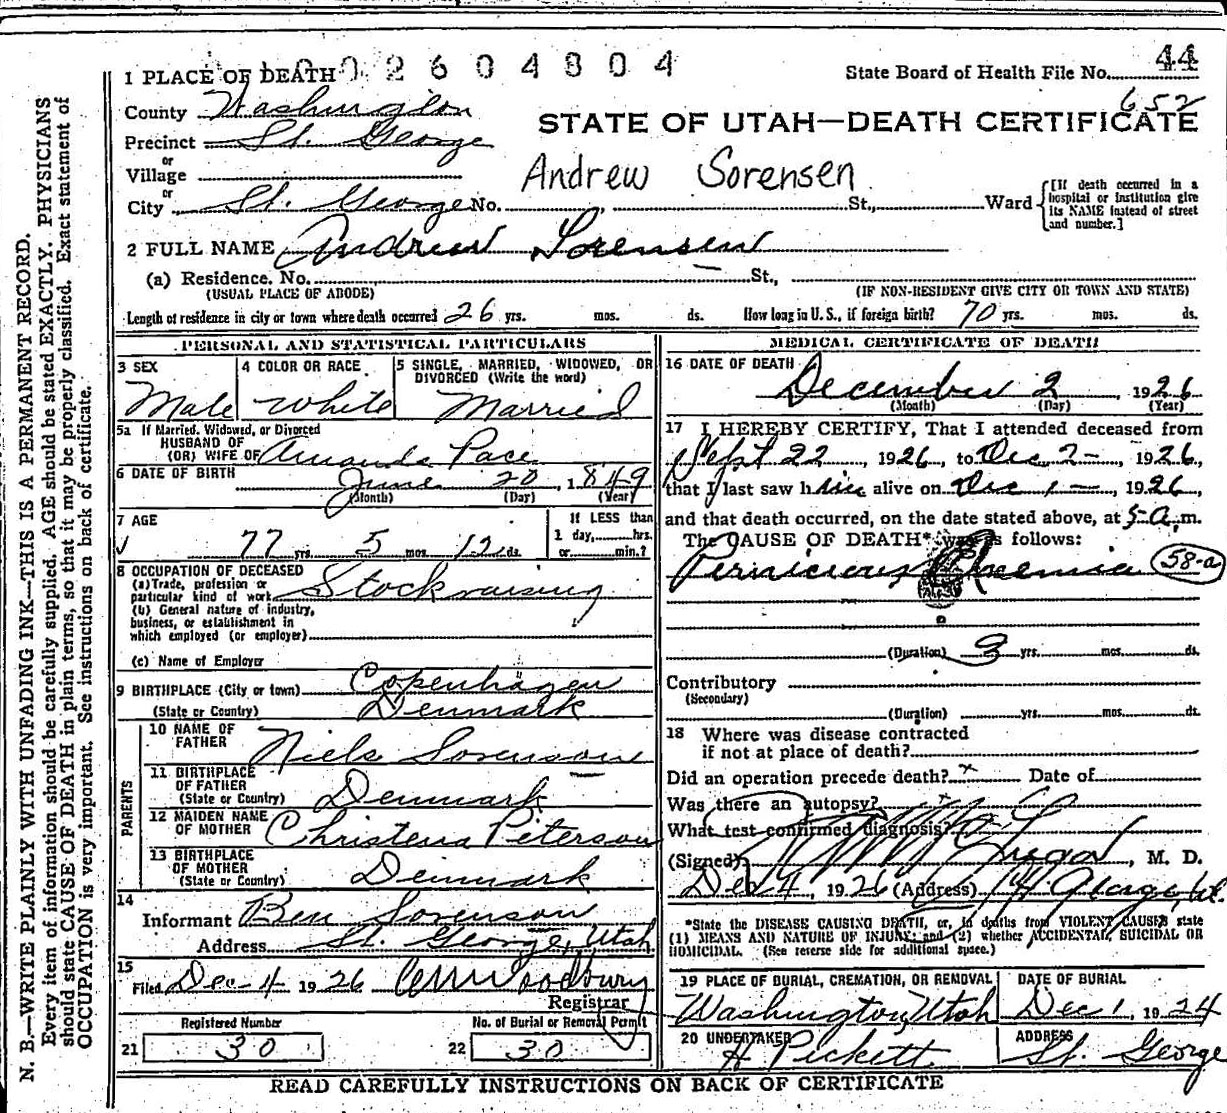 N. B.—WRITE PLAINLY WITH UNFADING INK—THIS IS A PERMANENT RECORD.
Every item of information should be carefully supplied. AGE should be stated EXACTLY. PHYSICIANS
should state CAUSE OF DEATH in plain terms, so that it may be properly classified. Exact statement of
OCCUPATION is very important. See instructions on back of certificate.
2604804
1 PLACE OF DEATH
State Board of Health File No. 44
652
County Washington
STATE OF UTAH—DEATH CERTIFICATE
Precinct St. George
or
Village
Andrew Sorensen
or
City St. George No. , St., Ward
[If death occurred in a
hospital or institution give
its NAME instead of street
and number.]
2 FULL NAME Andrew Sorensen
(a) Residence. No. St.,
(USUAL PLACE OF ABODE) (IF NON-RESIDENT GIVE CITY OR TOWN AND STATE)
Length of residence in city or town where death occurred 26 yrs. mos. ds. How long in U. S., if foreign birth? 70 yrs. mos. ds.
PERSONAL AND STATISTICAL PARTICULARS
3 SEX
Male
4 COLOR OR RACE
White
5 SINGLE, MARRIED, WIDOWED, OR
DIVORCED (Write the word)
Married
5a If Married, Widowed, or Divorced
HUSBAND OF
(OR) WIFE OF Amanda Pace
6 DATE OF BIRTH June 20, 1849
(Month) (Day) (Year)
7 AGE
77 yrs. 5 mos. 12 ds.
If LESS than
1 day, hrs.
or min.?
8 OCCUPATION OF DECEASED
(a) Trade, profession or
particular kind of work Stock raising
(b) General nature of industry,
business, or establishment in
which employed (or employer)
(c) Name of Employer
9 BIRTHPLACE (City or town) Copenhagen
(State or Country) Denmark
PARENTS
10 NAME OF
FATHER Niels Sorenson
11 BIRTHPLACE
OF FATHER
(State or Country) Denmark
12 MAIDEN NAME
OF MOTHER Christena Peterson
13 BIRTHPLACE
OF MOTHER
(State or Country) Denmark
14
Informant Ben Sorenson
Address St. George, Utah
15
Filed Dec 4 1926 Woodbury
Registrar
Registered Number
21 30
No. of Burial or Removal Permit
22 30
MEDICAL CERTIFICATE OF DEATH
16 DATE OF DEATH
December 2 1926
(Month) (Day) (Year)
17 I HEREBY CERTIFY, That I attended deceased from
Sept 22, 1926, to Dec 2, 1926,
that I last saw him alive on Dec 1, 1926,
and that death occurred, on the date stated above, at 5 a. m.
The CAUSE OF DEATH* was as follows:
Pernicious Anemia 58-a
(Duration) 3 yrs. mos. ds.
Contributory
(Secondary)
(Duration) yrs. mos. ds.
18 Where was disease contracted
if not at place of death?
Did an operation precede death? x Date of
Was there an autopsy?
What test confirmed diagnosis?
(Signed) , M. D.
Dec 4, 1926 (Address) St George, Ut.
*State the DISEASE CAUSING DEATH, or, in deaths from VIOLENT CAUSES state
(1) MEANS AND NATURE OF INJURY; and (2) whether ACCIDENTAL, SUICIDAL OR
HOMICIDAL. (See reverse side for additional space.)
19 PLACE OF BURIAL, CREMATION, OR REMOVAL
Washington, Utah
DATE OF BURIAL
Dec 1, 1924
20 UNDERTAKER
H Pickett
ADDRESS
St. George
READ CAREFULLY INSTRUCTIONS ON BACK OF CERTIFICATE